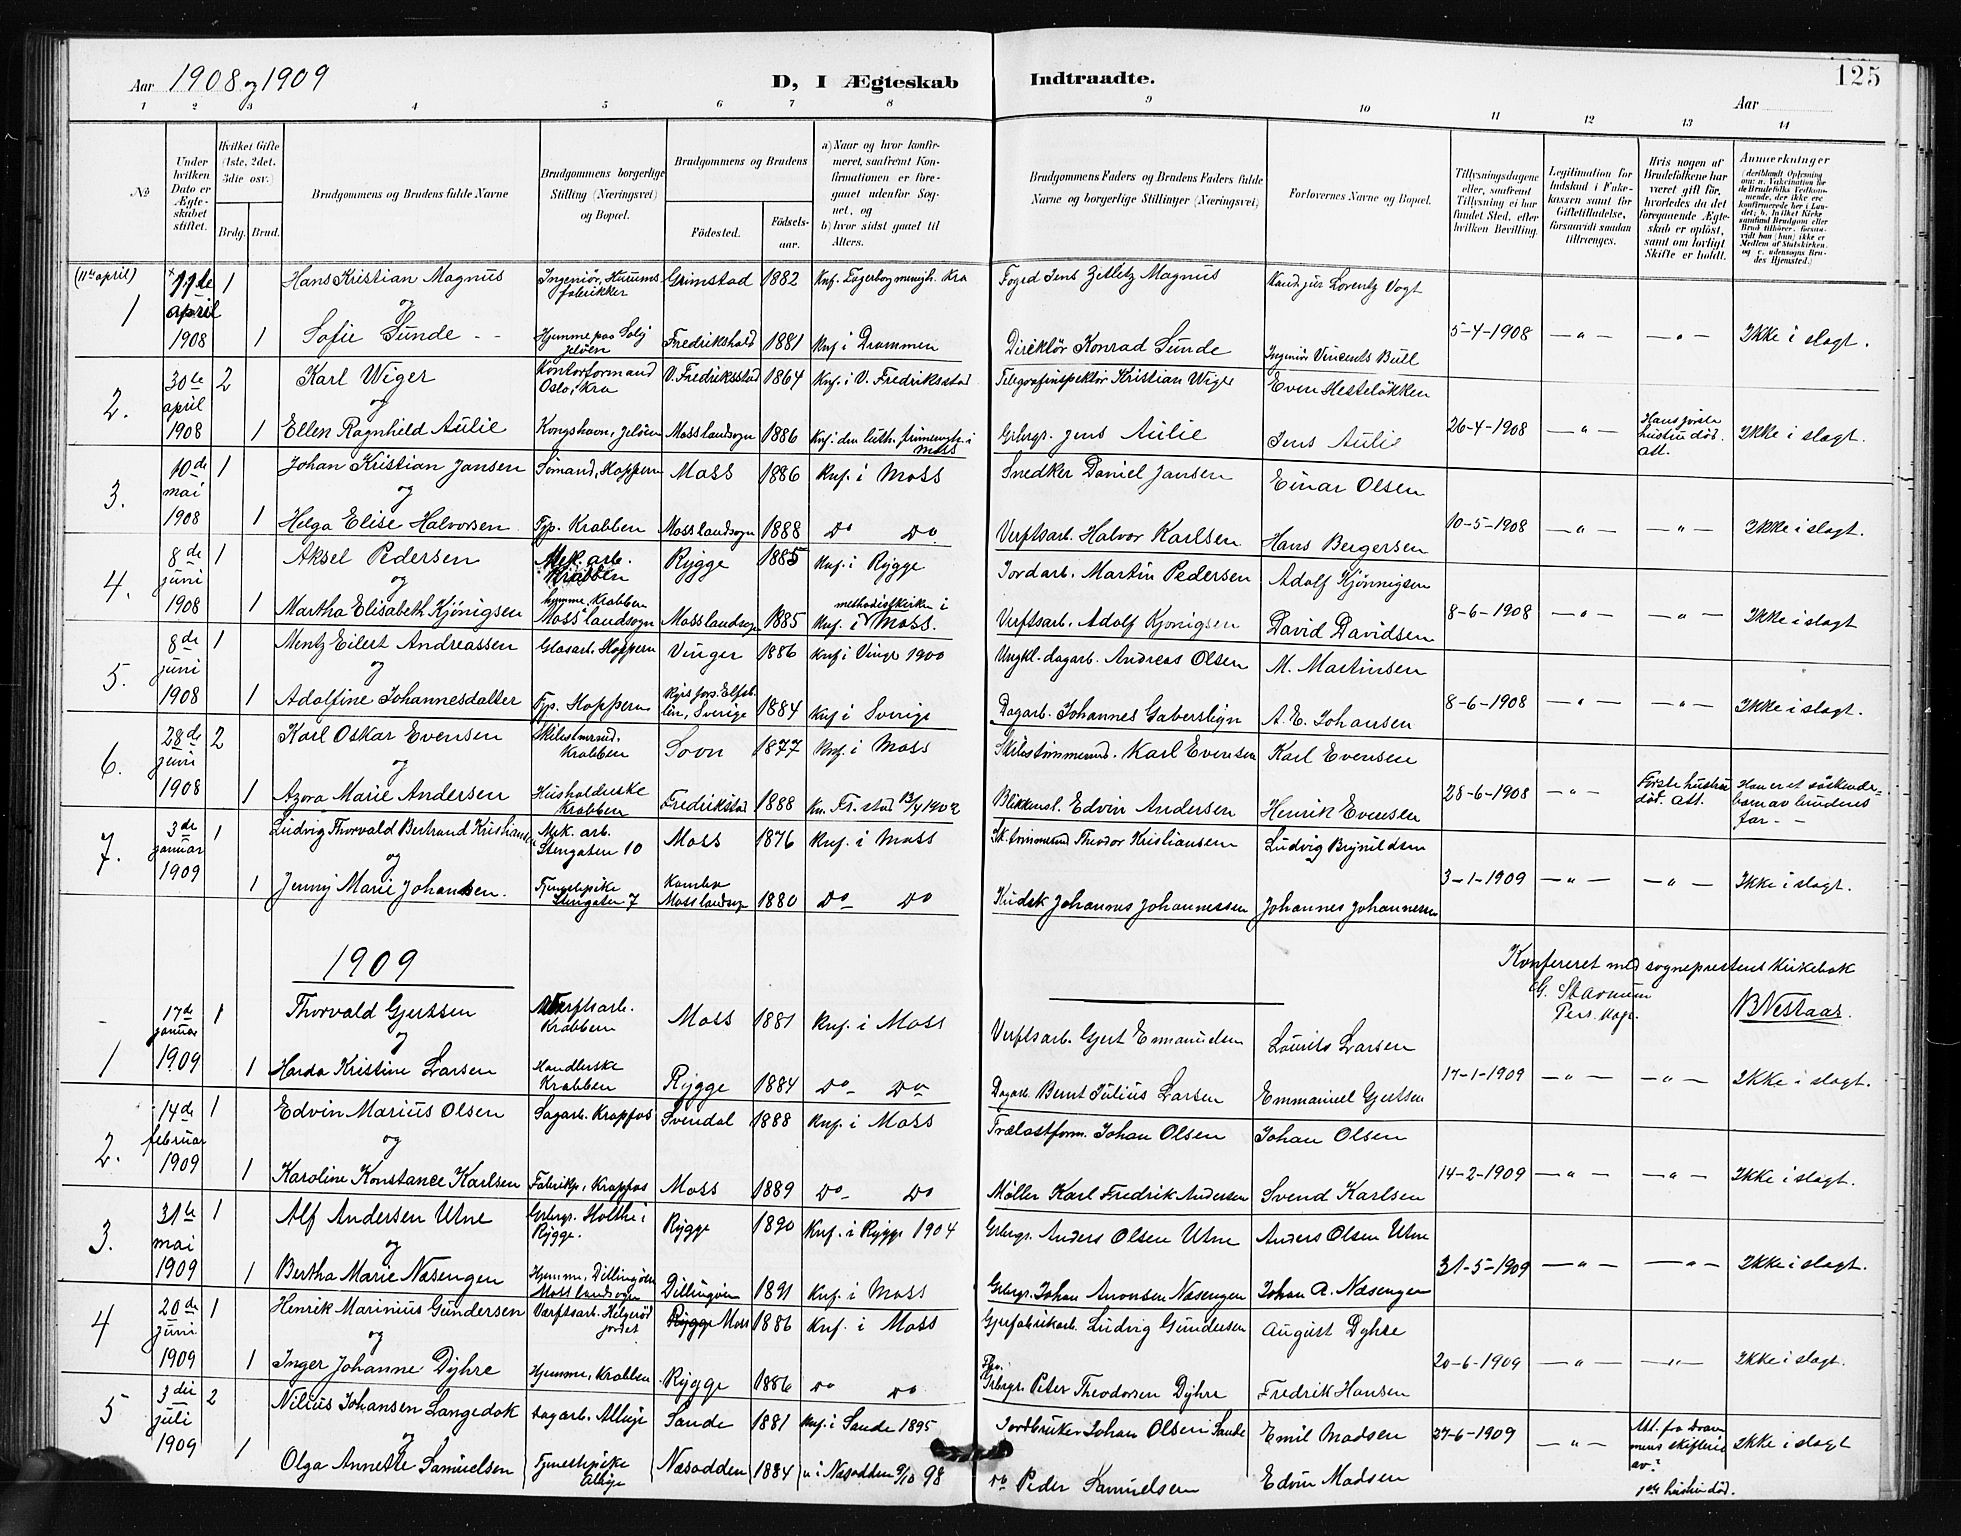 Aar 1908 og 1909
D, I Ægteskab Indtraadte.
125
Aar
1 2 3 4 5 6 7 8 9 10 11 12 13 14
No
Under hvilken Dato er Ægteskabet stiftet.
Hvilket Gifte (1ste, 2det, 3die osv.)
Brdg. Brud.
Brudgommens og Brudens fulde Navne
Brudgommens borgerlige Stilling (Næringsvei) og Bopæl.
Brudgommens og Brudens
Fødested.
Fødselsaar.
a) Naar og hvor konfirmeret, saafremt Konfirmationen er foregaaet udenfor Sognet, og
b) hvor sidst gaaet til Alters.
Brudgommens Faders og Brudens Faders fulde Navne og borgerlige Stillinger (Næringsvei)
Forlovernes Navne og Bopæl.
Tillysningsdagene eller, saafremt Tillysning ei har fundet Sted, efter hvilken Bevilling.
Legitimation for Indskud i Enkekassen samt for Giftetilladelse, forsaavidt saadan tiltrænges.
Hvis nogen af Brudefolkene har været gift før, hvorledes da det foregaaende Ægteskab er opløst, samt om lovligt Skifte er holdt.
Anmerkninger
(11te april) 11te april 1908 1
1 Hans Kristian Magnus Ingeniør, Hurums fabrikker Grimstad 1882 Knf. Uigerbog menigh. Kra Foged Jens Zetlitz Magnus Kand. jur Lorentz Vogt
og
1 Sofie Sunde Hjemme paa Solij Jeløen Fredrikshald 1881 Knf i Drammen Direktör Konrad Sunde Ingeniør Vincents Bull 5-4-1908 — " — — " — Ikke i slagt.
30te april 1908 2 Karl Wiger Kontorformand Oslo, Kra V. Fredriksstad 1864 Knf. i V. Fredriksstad Telegrafinspektör Kristian Wiger Even Hesteløkken
2. og
1 Ellen Ragnhild Aulie Kongshavn, Jeløen Moss landsogn 1886 Knf. den luth. frimengh. i Moss Grbrgr. Jens Aulie Jens Aulie 26-4-1908 — " — Hans første hustru död. Att. Ikke i slagt.
10de mai 1908 1 Johan Kristian Jansen Sömand, Hoppern Moss 1886 Knf. i Moss Snedker Daniel Jansen Einar Olsen
3. og
1 Helga Elise Halvorsen Fyp. Krabben Moss landsogn 1888 Do Do Verftsarb. Halvor Karlsen Hans Bergersen 10-5-1908 — " — — " — Ikke i slagt.
8de juni 1908 1 Aksel Pedersen Mek. arb. Krabben Rygge 1885 Knf. i Rygge Jordarb. Martin Pedersen Adolf Kjønnigsen
4. og
1 Martha Elisabeth Kjönigsen hjemme, Krabben Moss landsogn Moss landsogn 1885 Knf. i methodistkirken i Moss. Verftsarb. Adolf Kjonigsen David Davidsen 8-6-1908 — " — — " — Ikke i slagt
8de juni 1908 1 Mentz Eilert Andreassen Glasarb. Hoppern Vinger 1886 Knf i Vinger 1900 Ungkl. dagarb. Andreas Olsen M. Martinsen
5. og
1 Adolfine Johannesdatter Fyp. Hoppern Sverige 1884 Knf i Sverige Dagarb. Johannes A. E. Johansen 8-6-1908 — " — — " — Ikke i slagt.
28de juni 1908 2 Karl Oskar Evensen Skibstmrmd. Krabben Soon 1877 Knf. i Moss Skibstømmermd. Karl Evensen Karl Evensen
6. og
1 Azora Marie Andersen Husholderske Krabben Fredrikstad 1888 Kn. Fr.stad 13/4 1902 Blikkensl. Edvin Andersen Henrik Evensen 28-6-1908 — " — Første hustru död. Att. Han er et søskendebarn av brudens far. -
3de januar 1909 1 Ludvig Thorvald Bertrand Kristiansen Mek. arb. Stengaten 10 Moss 1876 Knf. i Moss Sk.tømmermd Theodor Kristiansen Ludvig Brynildsen
7. og
1 Jenny Marie Johansen. Tjenestepike Stengaten 7 Kambo Moss landsogn 1880 Do Do Kudsk Johannes Johannessen Johannes Johannessen 3-1-1909 — " — — " — Ikke i slagt.
1909
Konfereret med sogneprestens kirkebok
G. Starum Pers. kap.
B Nestaas.
17de januar 1909 1 Thorvald Gjertsen Verftsarb. Krabben Moss 1881 Knf. i Moss Verftsarb. Gjert Emanuelsen Laurits Larsen
1 og
1 Harda Kristine Larsen Handlerske Krabben Rygge 1884 Do Do Dagarb. Bernt Julius Larsen Emmanuel Gjertsen 17-1-1909 — " — — " — Ikke i slagt.
14de februar 1909 1 Edvin Marius Olsen Sagarb. Krapfos Svendal 1888 Knf. i Moss Trælastform. Johan Olsen Johan Olsen
2. og
1 Karoline Konstance Karlsen Fabrikp. Krapfos Moss 1889 Do Do Møller Karl Fredrik Andersen Svend Karlsen 14-2-1909 — " — — " — Ikke i slagt.
31te mai 1909 1 Alf Andersen Utne Grbrgr. Holthe i Rygge. Rygge 1890 Knf. i Rygge 1904 Grbrgr. Anders Olsen Utne Anders Olsen Utne
3. og
1 Bertha Marie Næsengen Hjemme, Dillingöen Moss landsogn Dillingöen 1891 Knf. i Moss Grbrgr. Johan Aronsen Næsengen Johan A. Næsengen 31-5-1909 — " — — " — Ikke i slagt.
20de juni 1909 1 Henrik Marinius Gundersen Værftsarb. Helgerödjordet Rygge Moss 1886 Knf. i Moss Gjærfabrikarb. Ludvig Gundersen August Dyhre
4 og
1 Inger Johanne Dyhre Hjemme, Krabben Rygge 1886 Do Do Fhv. Grbrgr. Peter Theodorsen Dyhre Fredrik Hansen 20-6-1909 — " — — " — Ikke i slagt.
3die juli 1909 2 Nilius Johansen Langedok Dagarb. Alby Sande 1881 Knf. i Sande 1895 Jordbruker Johan Olsen Sande Emil Madsen 27-6-1909 — " — Att. fra Drammens skifteri av? 1ste hustru död. Ikke i slagt
5 og
1 Olga Annette Samuelsen Tjenestepike Alby Næsodden 1884 " i Næsodden 9/10 98 Do Peder Samuelsen Edvin Madsen